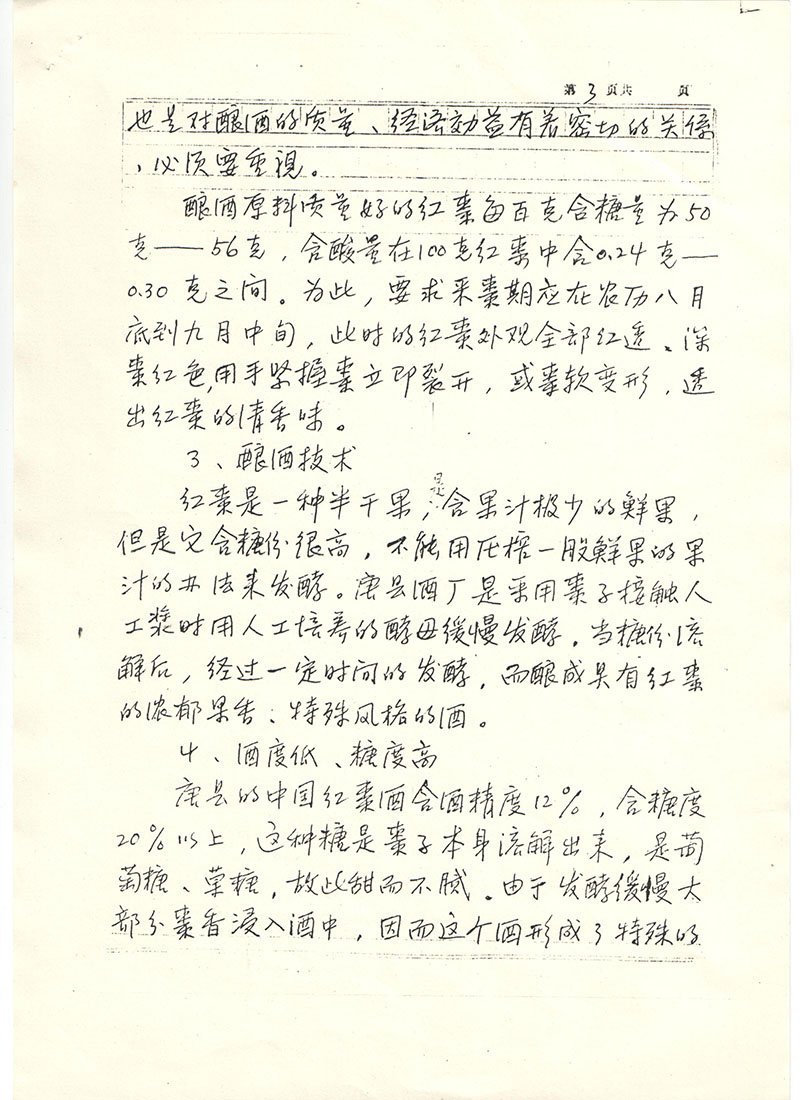 第3页共 页
也是对酿酒的质量、经济效益有着密切的关系
、必须要重视。
酿酒原料质量好的红枣每百克含糖量为50
克——56克，含酸量在100克红枣中含0.24克——
0.30克之间。为此，要求采枣期应在农历八月
底到九月中旬，此时的红枣外观全部红透、深
枣红色，用手紧握枣立即裂开，或枣软变形，透
出红枣的清香味。
3、酿酒技术
红枣是一种半干果，是含果汁极少的鲜果，
但是它含糖份很高，不能用压榨一般鲜果的果
汁的办法来发酵。唐县酒厂是采用枣子接触人
工浆时用人工培养的酵母缓慢发酵。当糖份溶
解后，经过一定时间的发酵，而酿成具有红枣
的浓郁果香、特殊风格的酒。
4、酒度低、糖度高
唐县的中国红枣酒含酒精度12%，含糖度
20%以上，这种糖是枣子本身溶解出来，是葡
萄糖、菓糖，故此甜而不腻。由于发酵缓慢大
部分枣香浸入酒中，因而这个酒形成了特殊的